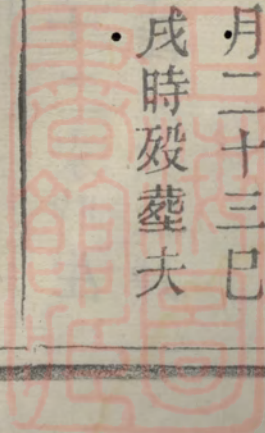 月二十三巳
戌時殁塟夫